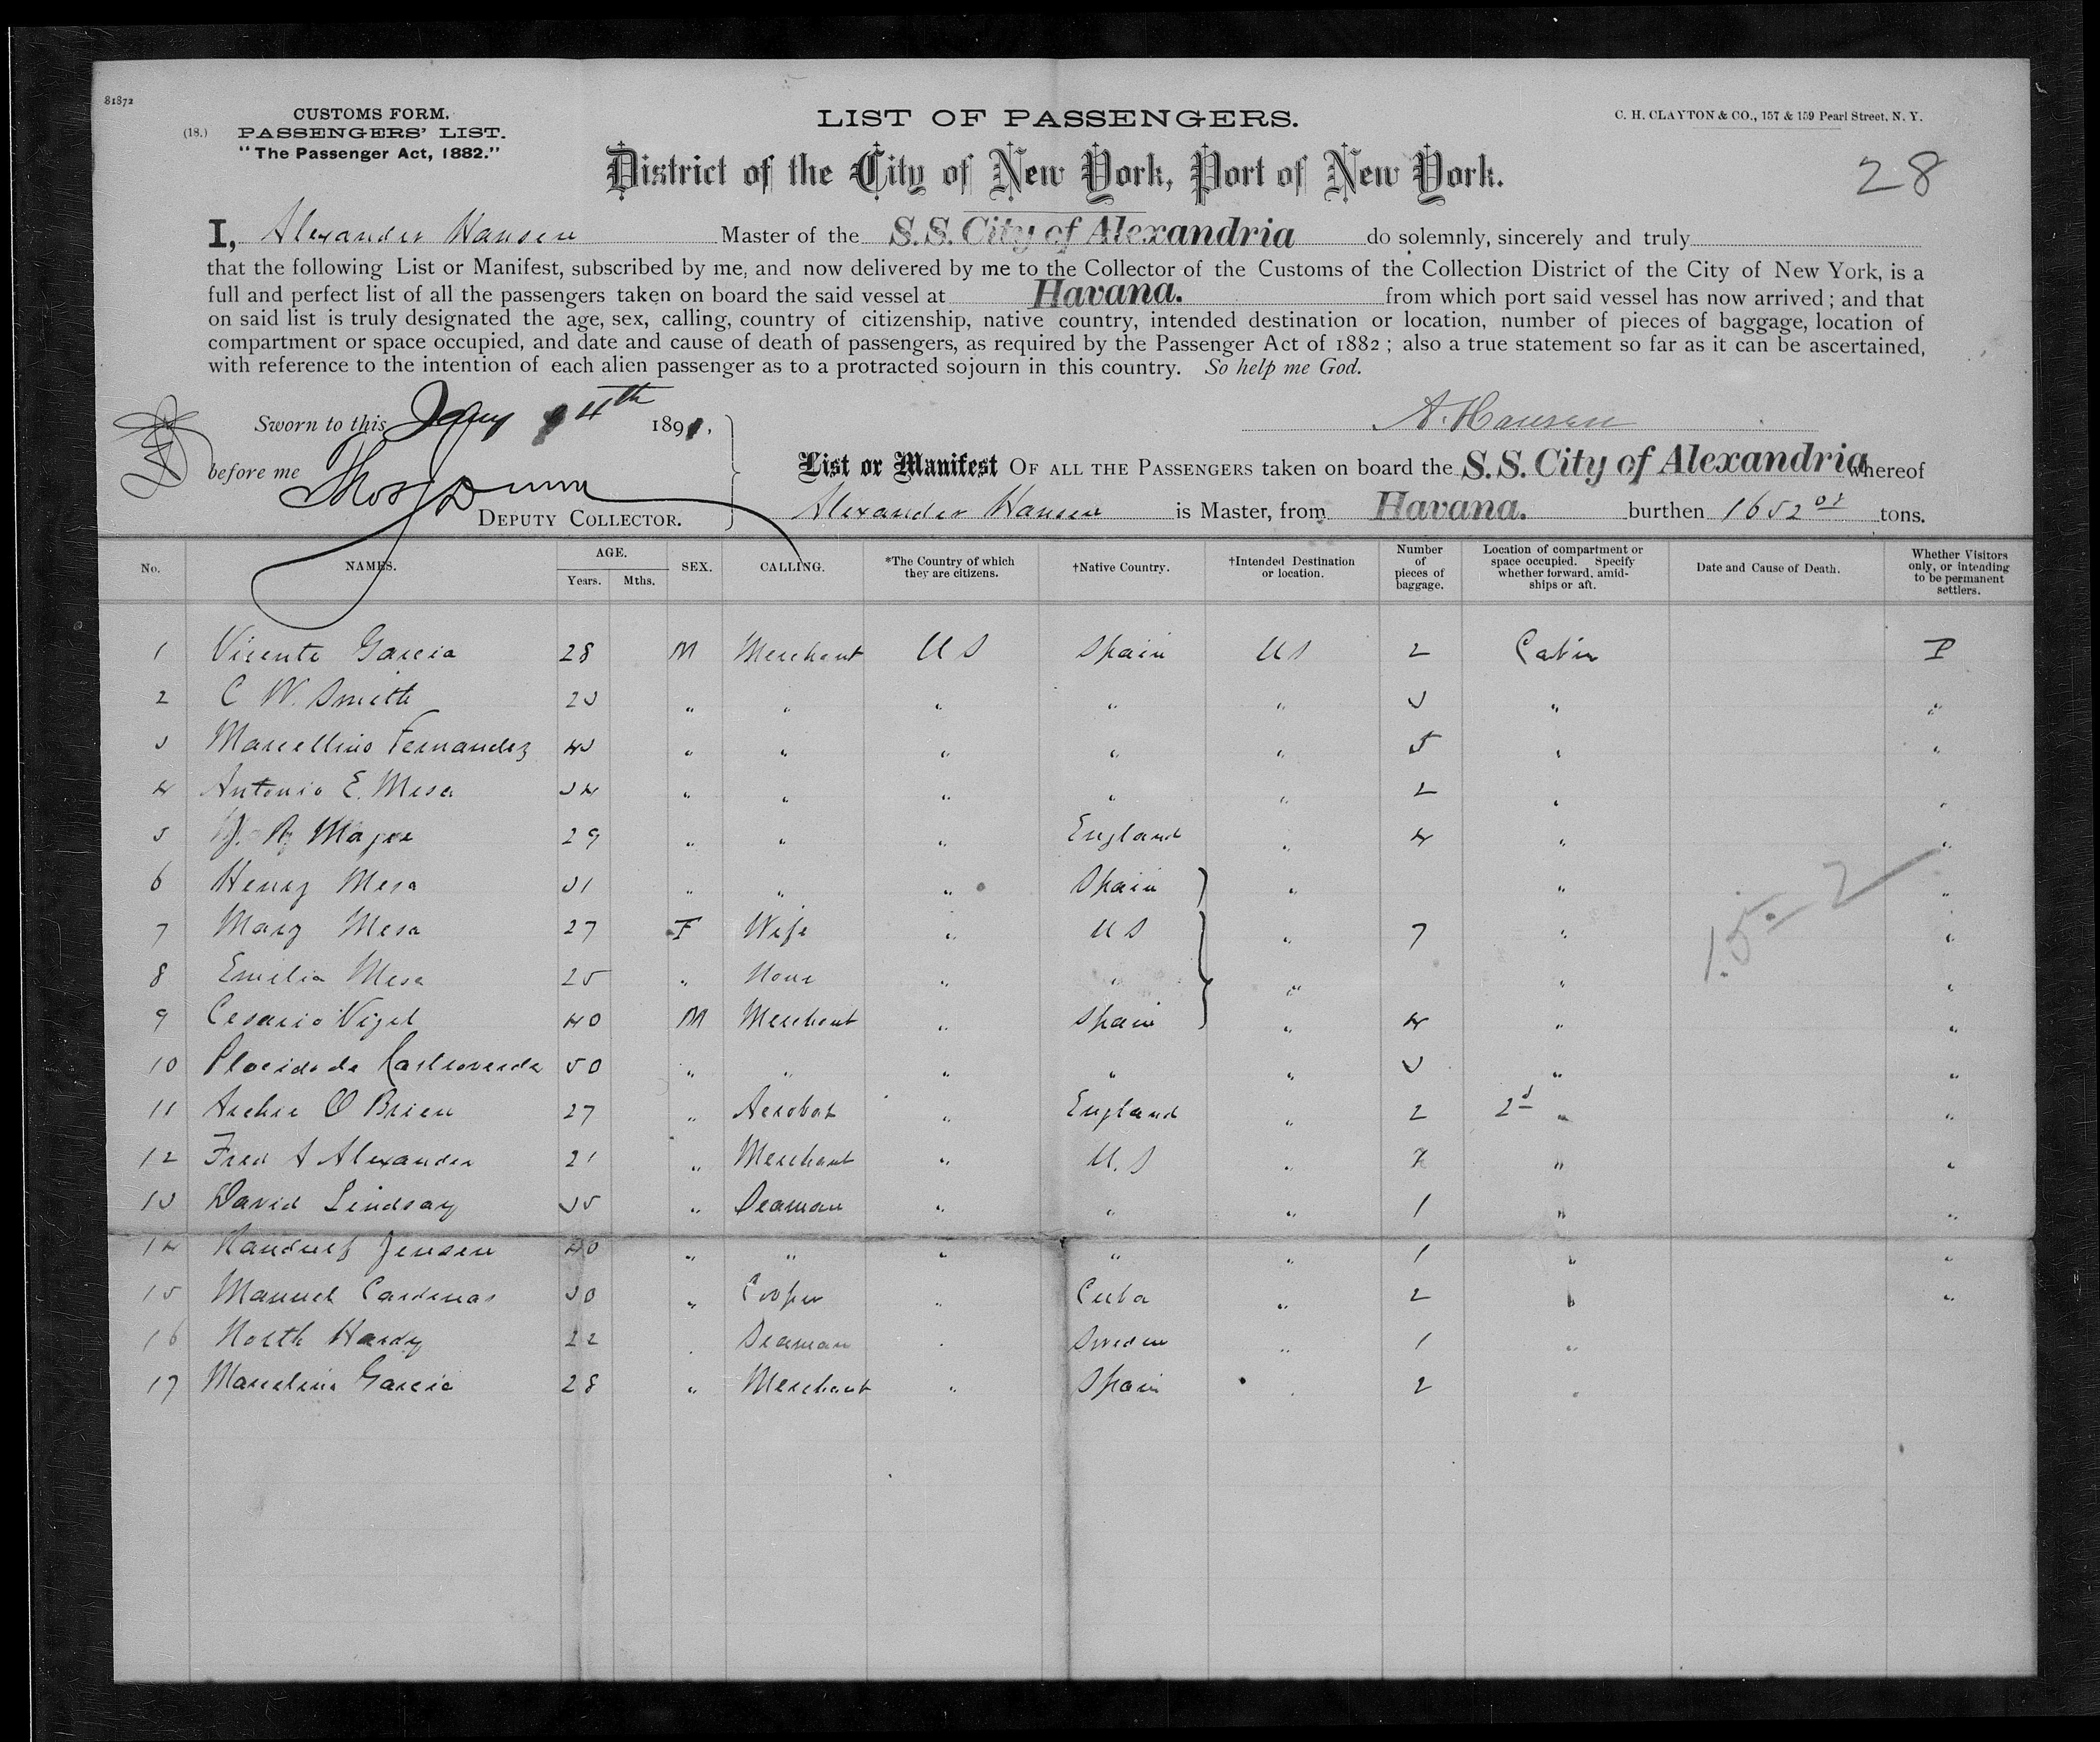 81872
CUSTOMS FORM.
(18.) PASSENGERS' LIST.
"The Passenger Act, 1882."
LIST OF PASSENGERS.
C. H. CLAYTON & CO., 157 & 159 Pearl Street, N. Y.
District of the City of New York, Port of New York.
28
I, Alexander Hansen Master of the S.S. City of Alexandria do solemnly, sincerely and truly
that the following List or Manifest, subscribed by me, and now delivered by me to the Collector of the Customs of the Collection District of the City of New York, is a
full and perfect list of all the passengers taken on board the said vessel at Havana. from which port said vessel has now arrived; and that
on said list is truly designated the age, sex, calling, country of citizenship, native country, intended destination or location, number of pieces of baggage, location of
compartment or space occupied, and date and cause of death of passengers, as required by the Passenger Act of 1882; also a true statement so far as it can be ascertained,
with reference to the intention of each alien passenger as to a protracted sojourn in this country. So help me God.
Sworn to this Jany 4th 1891,
A. Hansen
before me Thos J Dunn
DEPUTY COLLECTOR.
List or Manifest OF ALL THE PASSENGERS taken on board the S.S. City of Alexandria whereof
Alexander Hansen is Master, from Havana. burthen 1652 tons.
No. NAMES. AGE. Years. Mths. SEX. CALLING. *The Country of which they are citizens. †Native Country. †Intended Destination or location. Number of pieces of baggage. Location of compartment or space occupied. Specify whether forward, amidships or aft. Date and Cause of Death. Whether Visitors only, or intending to be permanent settlers.
1 Vicente Garcia 28 M Merchant US Spain US 2 Cabin P
2 C W. Smith 23 " " " " " 3 " "
3 Marcellino Fernandez 43 " " " " " 5 " "
4 Antonio E. Mesa 34 " " " " " 2 " "
5 29 " " " England " 4 " "
6 Henry Mesa 31 " " " Spain " " "
7 Mary Mesa 27 F Wife " US " 7 " "
8 Emilia Mesa 25 " None " " " " "
9 Cesario Vigil 40 M Merchant " Spain " 4 " "
10 Placido de Castroverde 50 " " " " " 3 " "
11 Archie O Brien 27 " Acrobat " England " 2 2d " "
12 Fred A Alexander 21 " Merchant " U.S " " "
13 David Lindsay 35 " Seaman " " " 1 " "
14 Jensen 40 " " " " " 1 " "
15 Manuel Cardenas 30 " Cooper " Cuba " 2 " "
16 North Hardy 22 " Seaman " Sweden " 1 "
17 Marcelino Garcia 28 " Merchant " Spain " 2 "
15-2